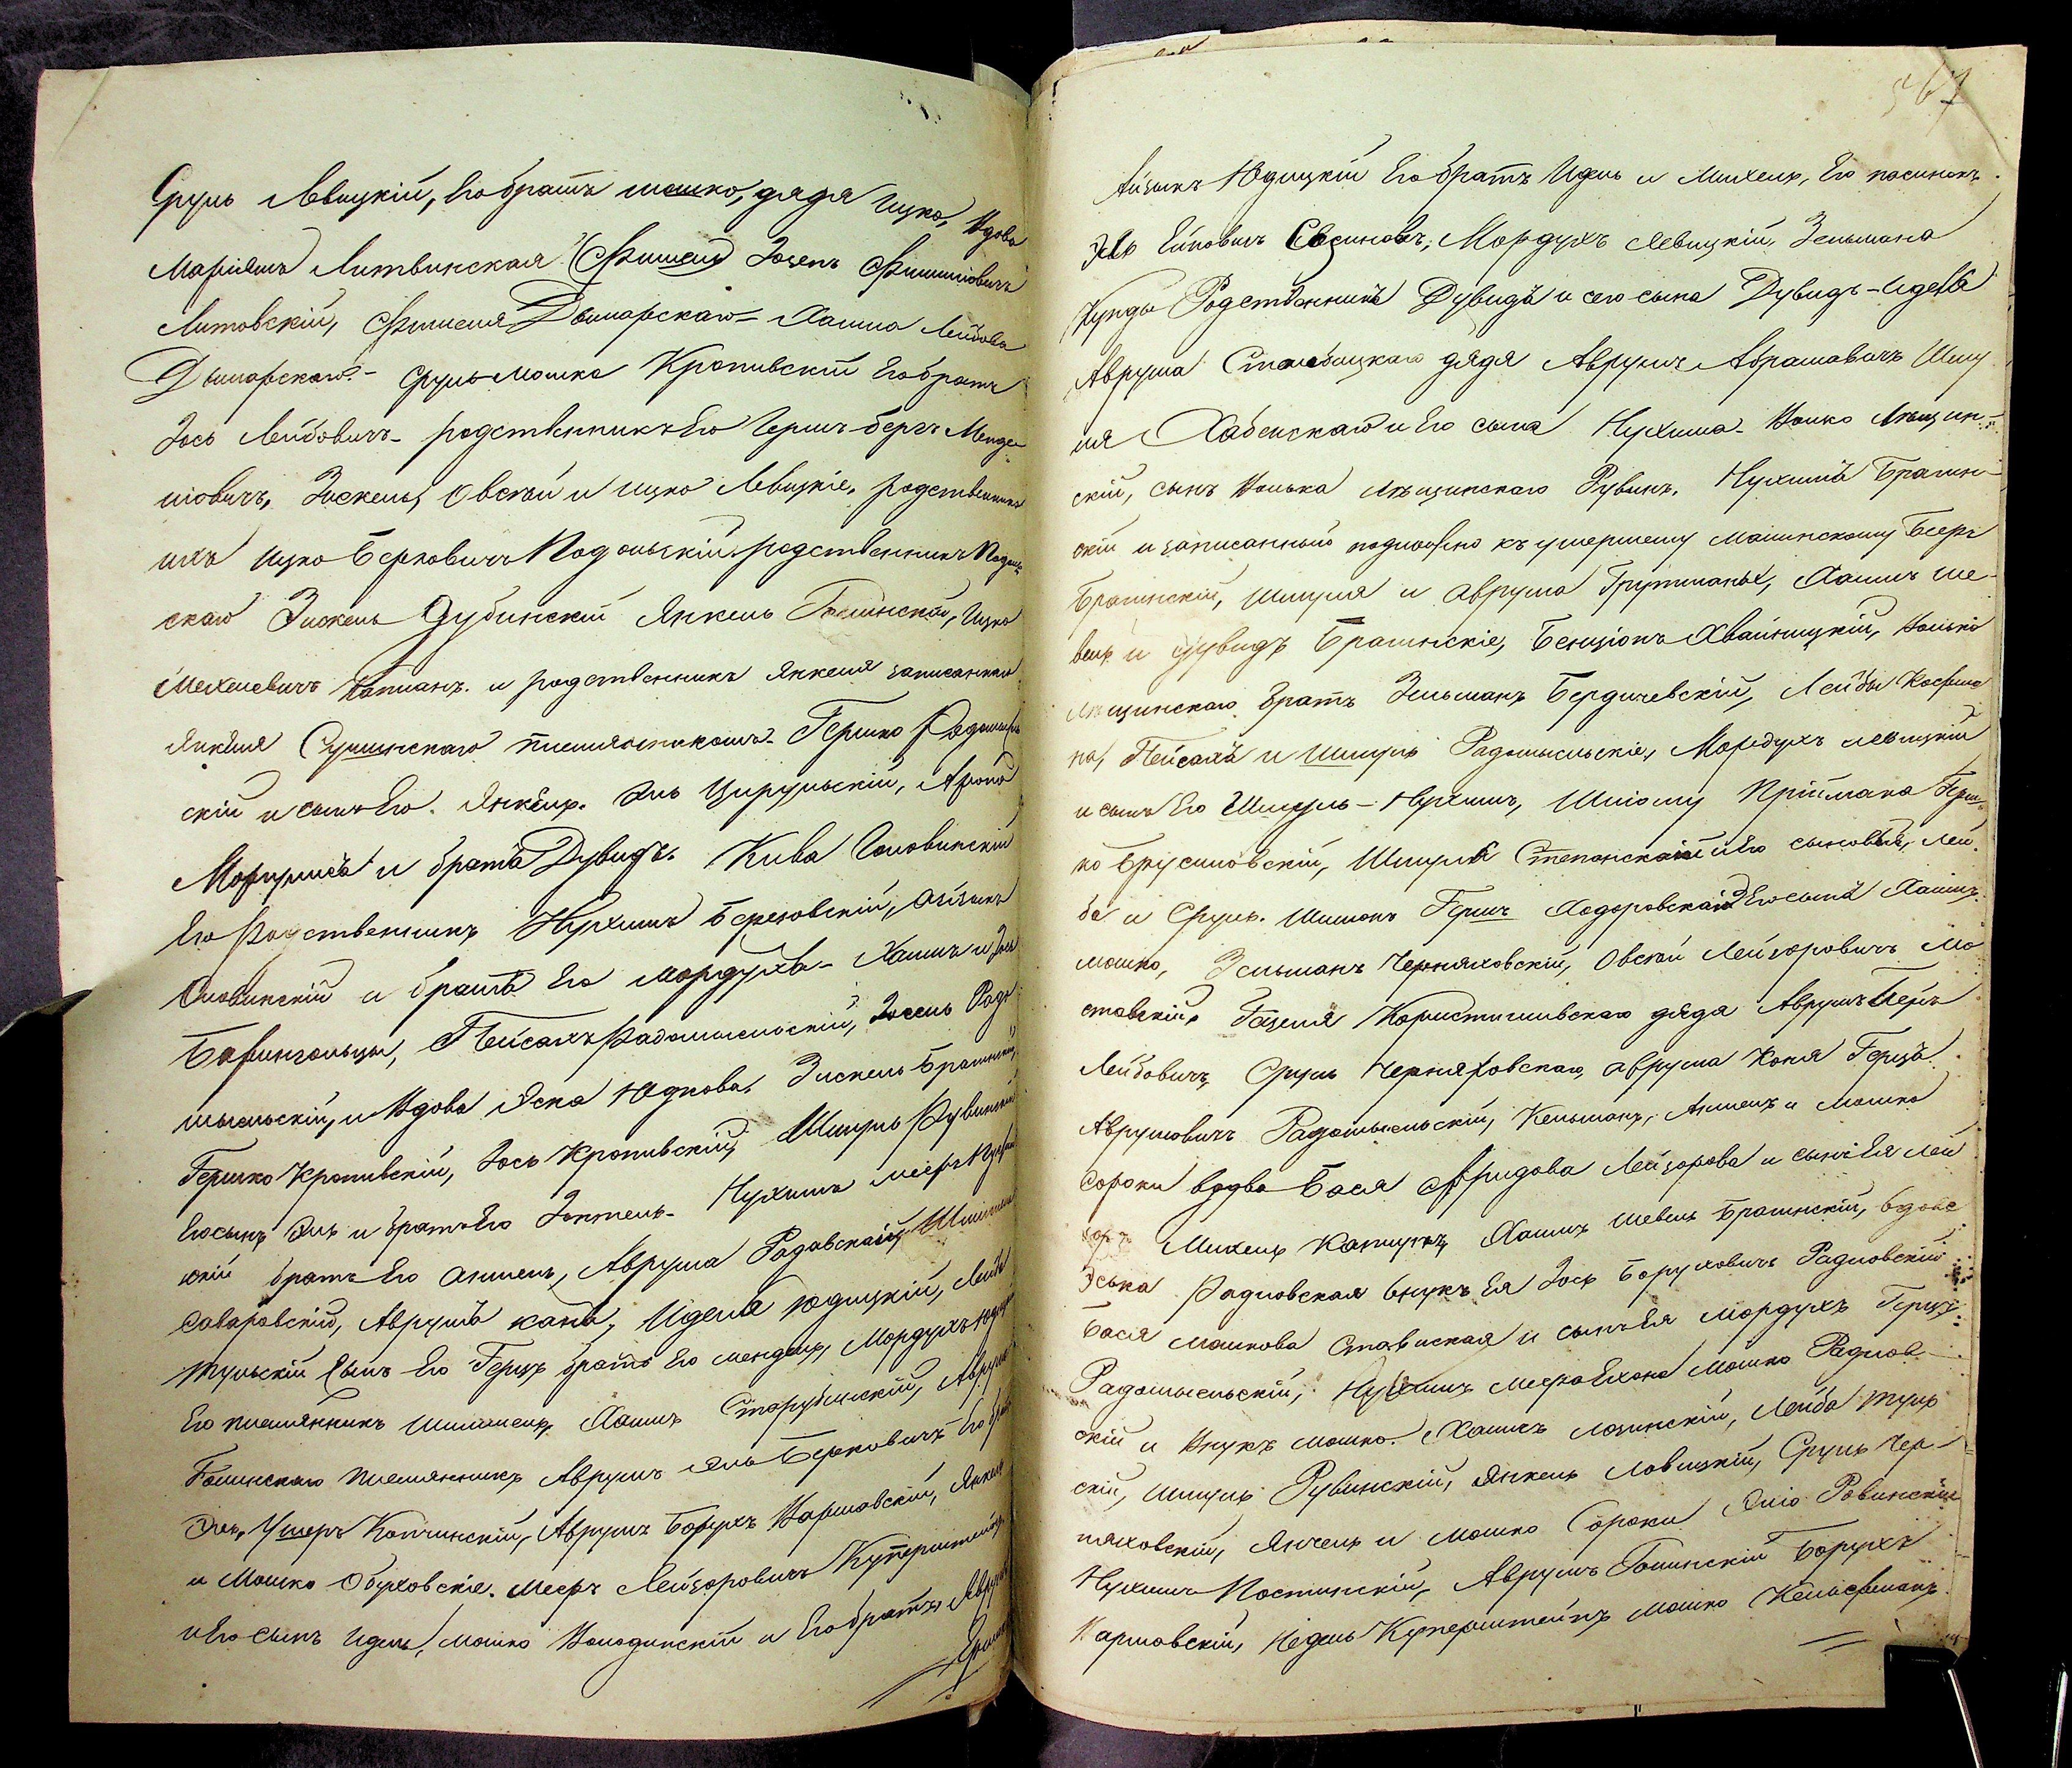 Сруль Левицкій, Его братъ мошко, дядя Ицко, Вдова
Маріямъ Литвинская (Фишеля) Зосепъ Фишиловичъ
Литовскій, Фишеля Дымарскаго - Хаима Лейбова
Дымарскаго - Сруль Мошка Кропивскій Его братъ
Зось Лейбовичъ - родственникъ Его Гершъ-беръ Менде-
ліовичъ, Зискель, Овсѣй и Ицко Левицкіе, родственникъ
ихъ Ицко Берковичъ Подольскій родственникъ Подоль-
скаго Зискель Дубинскій Янкель Гошинскій, Ицко
Мехелевичъ и родственникъ Янкеля записаннаго
Янкеля Сушинскаго племянникомъ - Гершко Радомысль-
скій и сынъ Его Янкель. Эль Цирульскій, Арона
и братъ Дувидъ. Кива Словинскій
Его Родственникъ Нухимъ Березовскій, Айзикъ
Словинскій и братъ Его Мордухъ - Хаимъ и Зось
Пейсахъ Радомысльскій, Зосель Радо-
мысльскій, и Вдова Эска Юдкова, Зискель Брагинскій,
Гершко Кропивскій, Зось Кропивскій, Шмуль Рувинскій
Его сынъ Эль и братъ Его Зоктель - Нухимъ Мееръ
скій братъ Его Аншель, Аврума Радовскаго
Саваровскій, Аврумъ канъ, Иделя Юдицкій, Лейба
Тульскій сынъ Его Герцъ братъ Его Мендель, Мордухъ
Его племянникъ Шмилель, Хаимъ Старубинскій, Аврумъ
Гошинскаго племянникъ Аврумъ Эль Берковичъ Его братъ
Эль, Ушеръ Копчинскій, Аврумъ Борухъ Варшавскій, Янкель
и Мошко Обуховскіе. Мееръ Лейзоровичъ Куперштейнъ
и Его сынъ Идель, Мошко Володинскій и Его братья Аврумъ
567
Айзикъ Юдицкій Его братъ Идель и Михель, Его пасынокъ
Эль Мордухъ Левицкій, Зельмана
Родственникъ Дувидъ и его сына Дувидъ - Идель
Аврума Столбицкаго дядя Аврумъ Абрамовичъ Шму-
ля Хабенскаго и Его сына Нухима - Волько Лещин-
скій, сынъ Волька Лещинскаго Рувинъ, Нухимъ Брагин-
скій и записанный подложно къ умершему Малинскому Беръ
Брагинскій, Шмуля и Аврума Грутманы, Хаимъ Ше-
вель и Дувидъ Брагинскіе, Бенціонъ Хвайницкій, Волько
Лещинскаго Братъ Зельманъ Бердичевскій, Лейбы Кауфма-
на, Пейсахъ и Шмуль Радомысльскіе, Мордухъ Левицкій
и сынъ Его Шмуль - Нухимъ, Шліому Пріймака Герш-
ко Брусиловскій, Шмуля Степанскаго и Его сыновья, Лей-
ба и Сруль. Шимонъ Гершъ Ходоровскаго Его сынъ Хаимъ
мошко, Зельманъ Черняховскій, Овсѣй Лейзоровичъ Мо-
стовскій, Гацеля Коростышевскаго дядя Аврумъ Беръ
Лейбовичъ, Сруль Черняховскаго, Аврума Коня Герцъ
Аврумовичъ Радомысльскій, Кельманъ, Аншель и Мошко
Сороки вдова Бася Фридова Лейзорова и сынъ Ея Лей-
зоръ Михель Капнукъ, Хаимъ Шевель Брагинскій, вдова
Эська Радловская внукъ Ея Зось Боруховичъ Радловскій
Бася Мошкова Ставиская и сынъ Ея Мордухъ Герцъ
Радомысльскій, Нухимъ Мошко Радлов-
скій и Внукъ Мошко. Хаимъ Лозинскій, Лейба Туль-
скій, Шмуль Рувинскій, Янкель Ловицкій, Сруль Чер-
няховскій, Янчель и Мошко Сороки Эліо Ровинскій
Нухимъ Постинскій, Аврумъ Гошинскій Борухъ
Варшовскій, Нидель Куперштейнъ Мошко Кельферманъ